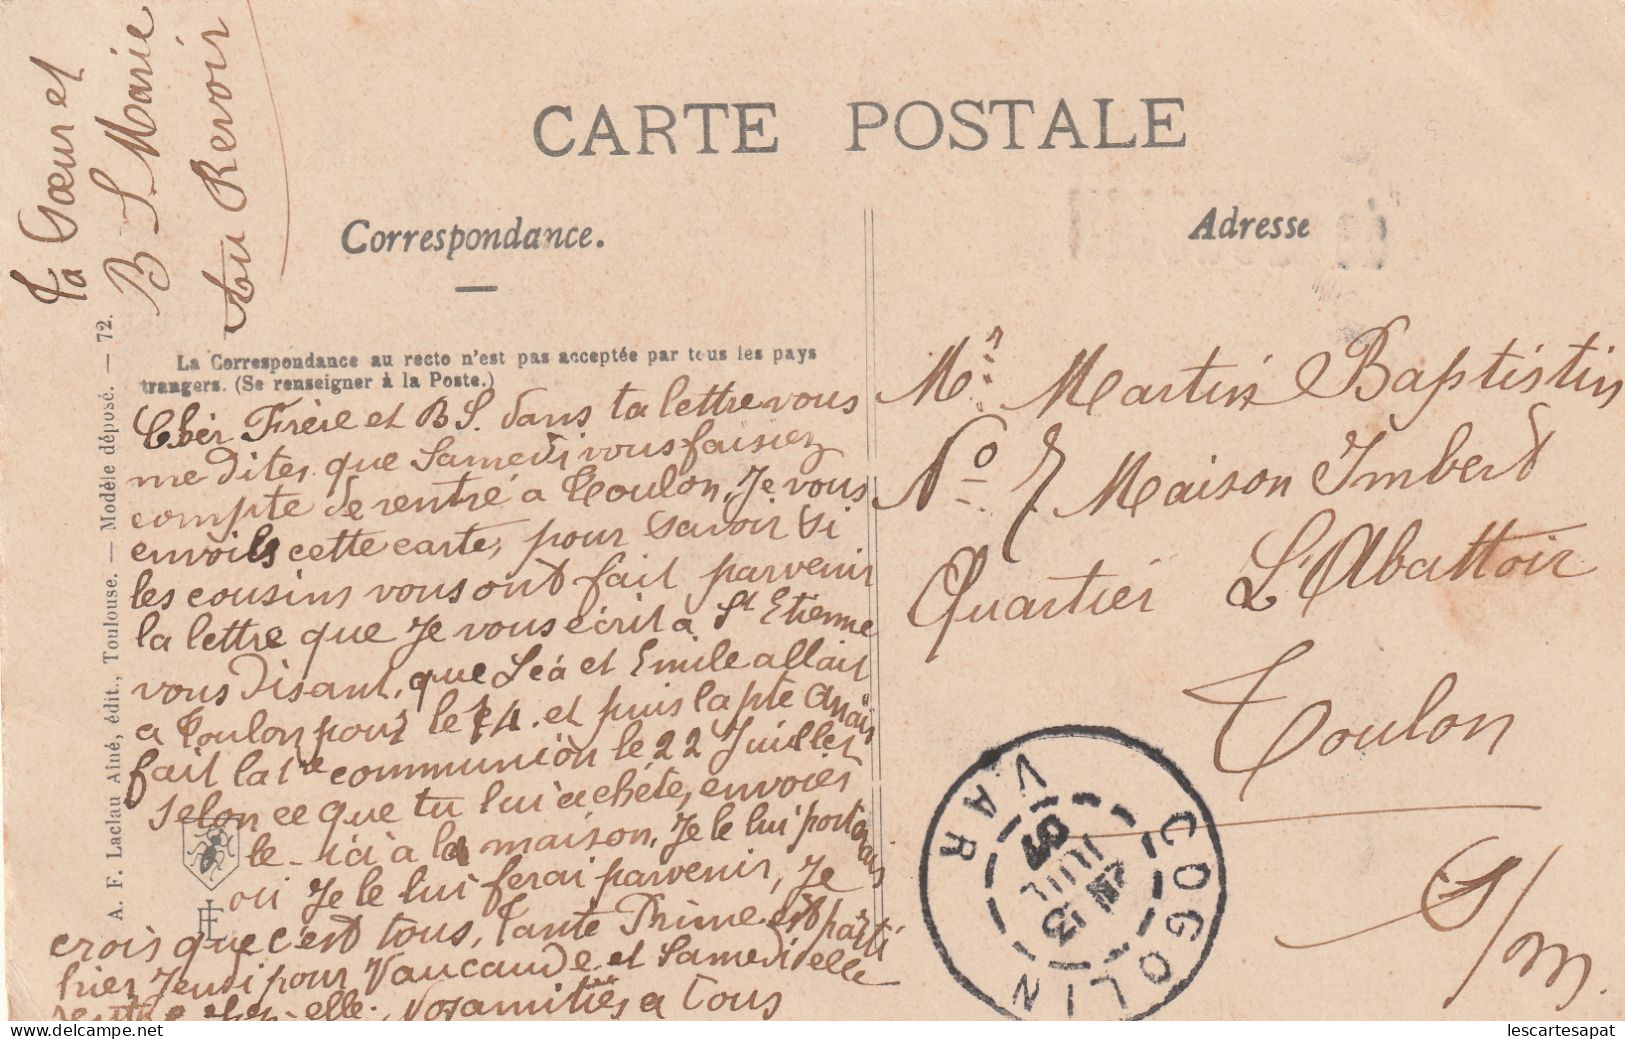 CARTE POSTALE
Correspondance.
Adresse
La Correspondance au recto n'est pas acceptée par tous les pays
trangers. (Se renseigner à la Poste.)
Cher Frère et B S. dans ta lettre vous
me dites que Samedi vous faisiez
compte de rentré a Toulon, Je vous
envoils cette carte, pour savoir si
les cousins vous ont fait parvenir
la lettre que Je vous écrit a St Etienne
vous disant, que Léa et Emile allait
a Toulon pour le 14. et puis la pte Anaïs
fait la 1re communion le 22 Juillet
selon ce que tu lui achéte, envoies
le-ici à la maison, Je le lui porterais
ou Je le lui ferai parvenir, Je
crois que c'est tous, Tante Thrime est parti
hier Jeudi pour Vaucaude et Samedi elle
rentre chez-elle. Nos amitiés a Tous
Ta Sœur et
B S Marie
Au Revoir
A. F. Laclau Ainé, édit., Toulouse. — Modèle déposé. — 72.
Mr. Martin Baptistin
No 7 Maison Imbert
Quartier L'Abattoir
Toulon
S/m.
COGOLIN
VAR
13
JUIL
lescartesapat